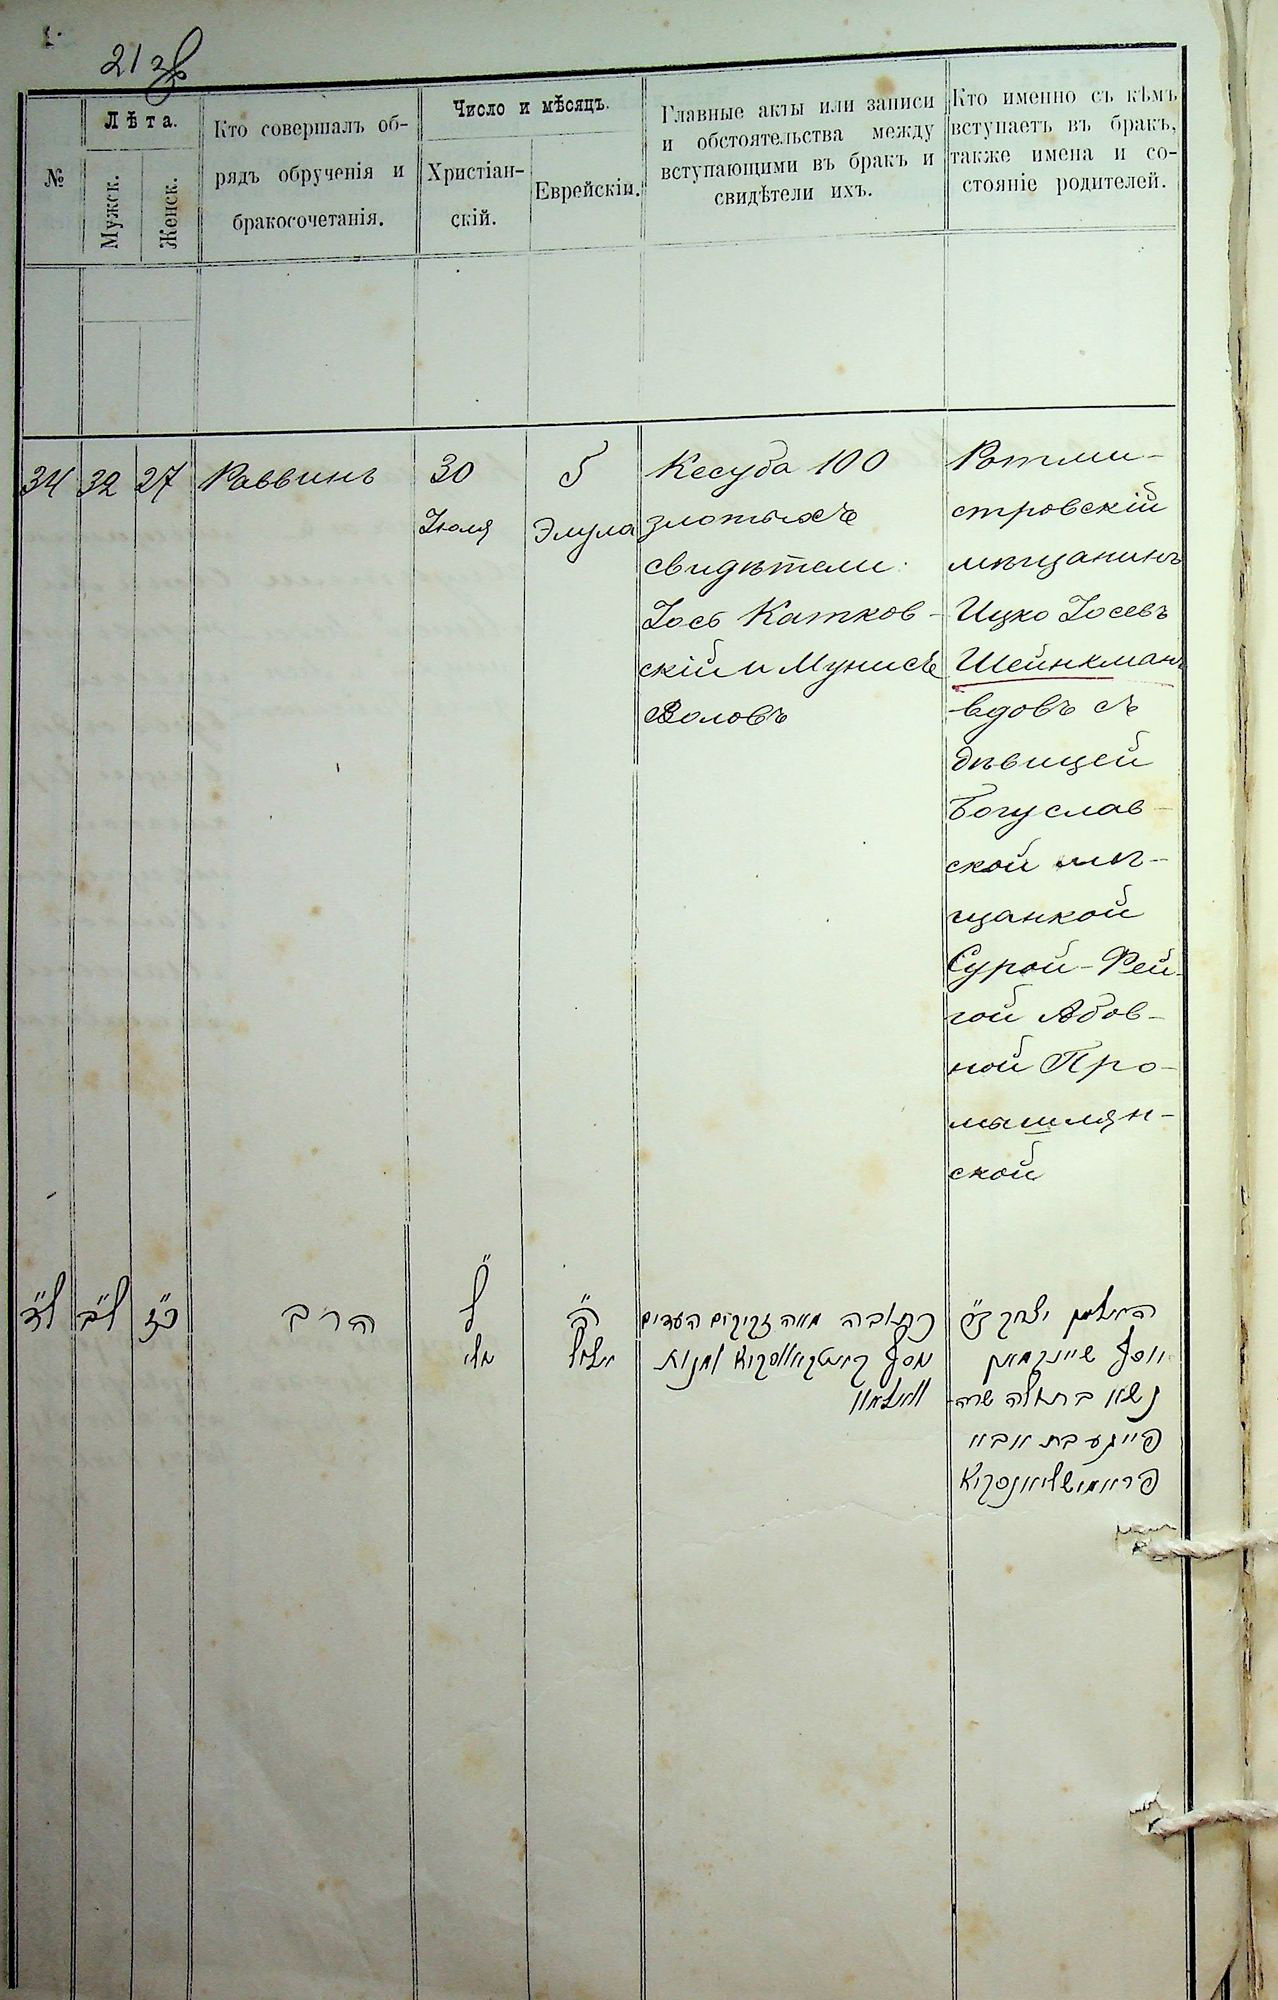 21 зв
№
Лѣта.
Мужск.
Женск.
Кто совершалъ об-
рядъ обрученія и
бракосочетанія.
Число и мѣсяцъ.
Христіан-
скій.
Еврейскіи.
Главные акты или записи
и обстоятельства между
вступающими въ бракъ и
свидѣтели ихъ.
Кто именно съ кѣмъ
вступаетъ въ бракъ,
также имена и со-
стояніе родителей.
34
32
27
Раввинъ
30
Іюля
5
Элула
Кесуба 100
злотыхъ
свидѣтели
Іось Катков-
скій и Мунисъ
Воловъ
Ротми-
стровскій
мѣщанинъ
Ицко Іосевъ
Шейнкманъ
вдовъ съ
дѣвицей
Богуслав-
ской мѣ-
щанкой
Сурой-Фей-
гой Абов-
ной Про-
мышлян-
ской
ל״ד
ל״ב
כ״ז
הרב
ל״
יולי
ה״
אלול
כתובה מאה זקוקים העדים
יוסף קאטקאווסקיא
האלמן יצחק
יוסף שיינקמאן
נשא בתולה שרה
פייגע בת אבא
פראמישליאנסקיא